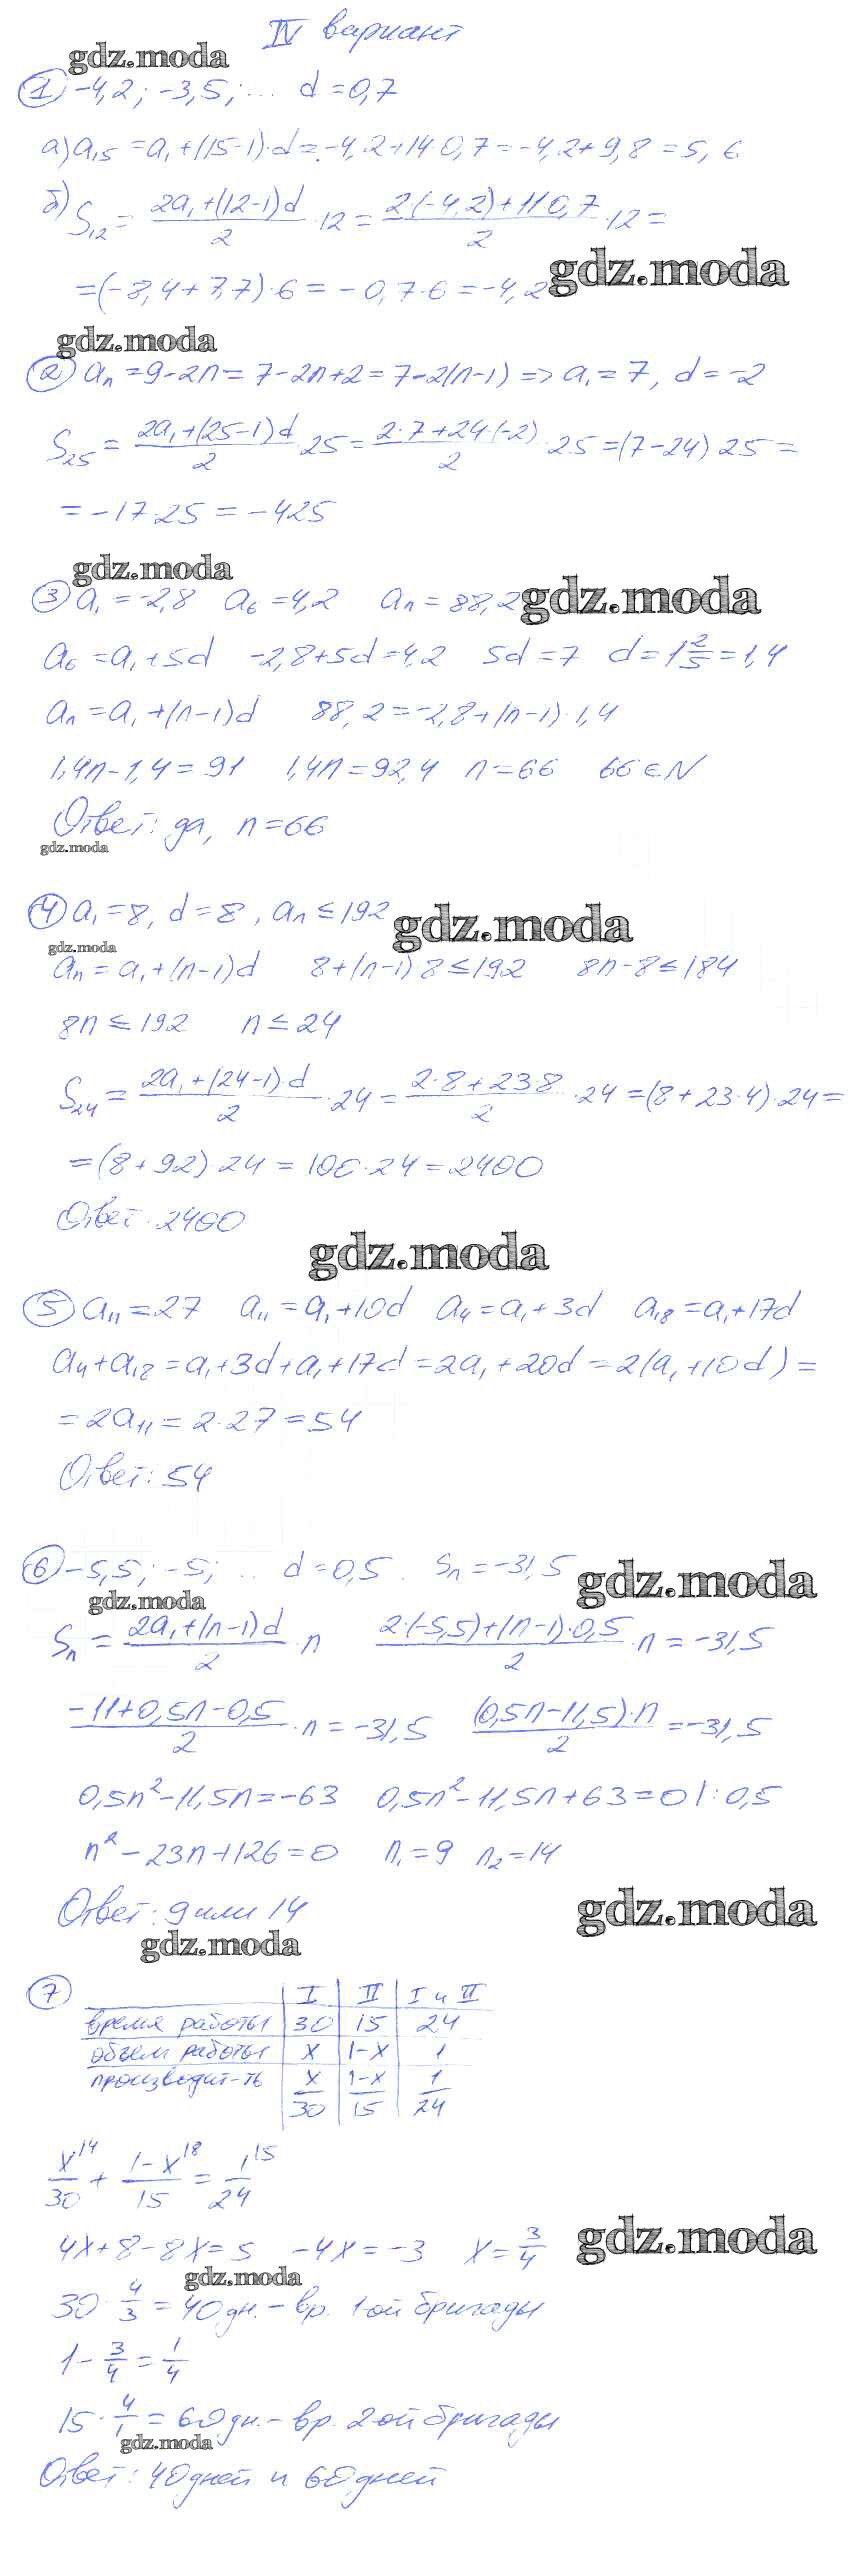 IV вариант
gdz.moda
① -4,2; -3,5; ... d = 0,7
а) a₁₅ = a₁+(15-1)·d = -4,2+14·0,7 = -4,2+9,8 = 5,6
б) S₁₂ = (2a₁+(12-1)d)/2 · 12 = (2(-4,2)+11·0,7)/2 · 12 =
= (-8,4+7,7)·6 = -0,7·6 = -4,2
gdz.moda
gdz.moda
② aₙ = 9-2n = 7-2n+2 = 7-2(n-1) => a₁ = 7, d = -2
S₂₅ = (2a₁+(25-1)d)/2 · 25 = (2·7+24·(-2))/2 · 25 = (7-24)·25 =
= -17·25 = -425
gdz.moda
③ a₁ = -2,8 a₆ = 4,2 aₙ = 88,2
gdz.moda
a₆ = a₁+5d -2,8+5d = 4,2 5d = 7 d = 1 2/5 = 1,4
aₙ = a₁+(n-1)d 88,2 = -2,8+(n-1)·1,4
1,4n-1,4 = 91 1,4n = 92,4 n = 66 66 ∈ N
Ответ: да, n = 66
gdz.moda
④ a₁ = 8, d = 8, aₙ ≤ 192
gdz.moda
gdz.moda
aₙ = a₁+(n-1)d 8+(n-1)·8 ≤ 192 8n-8 ≤ 184
8n ≤ 192 n ≤ 24
S₂₄ = (2a₁+(24-1)·d)/2 · 24 = (2·8+23·8)/2 · 24 = (8+23·4)·24 =
= (8+92)·24 = 100·24 = 2400
Ответ: 2400
gdz.moda
⑤ a₁₁ = 27 a₁₁ = a₁+10d a₄ = a₁+3d a₁₈ = a₁+17d
a₄+a₁₈ = a₁+3d+a₁+17d = 2a₁+20d = 2(a₁+10d) =
= 2a₁₁ = 2·27 = 54
Ответ: 54
⑥ -5,5; -5; ... d = 0,5. Sₙ = -31,5
gdz.moda
gdz.moda
Sₙ = (2a₁+(n-1)d)/2 · n (2·(-5,5)+(n-1)·0,5)/2 · n = -31,5
(-11+0,5n-0,5)/2 · n = -31,5 ((0,5n-11,5)·n)/2 = -31,5
0,5n²-11,5n = -63 0,5n²-11,5n+63 = 0 |:0,5
n²-23n+126 = 0 n₁ = 9 n₂ = 14
Ответ: 9 или 14
gdz.moda
gdz.moda
⑦ I II I и II
время работы 30 15 24
объем работы x 1-x 1
производит-ть x/30 (1-x)/15 1/24
x/30 |4 + (1-x)/15 |8 = 1/24 |5
4x+8-8x = 5 -4x = -3 x = 3/4
gdz.moda
gdz.moda
30·4/3 = 40 дн. - вр. 1-ой бригады
1 - 3/4 = 1/4
15·4/1 = 60 дн. - вр. 2-ой бригады
gdz.moda
Ответ: 40 дней и 60 дней